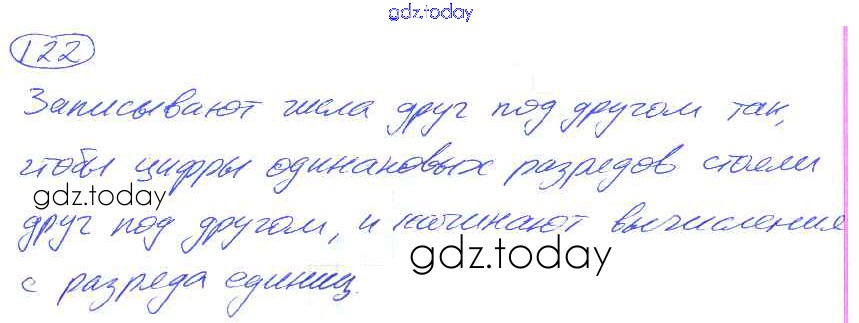 gdz.today
122
Записывают числа друг под другом так,
чтобы цифры одинаковых разредов стояли
gdz.today
друг под другом, и начинают вычисления
gdz.today
с разреда единиц.